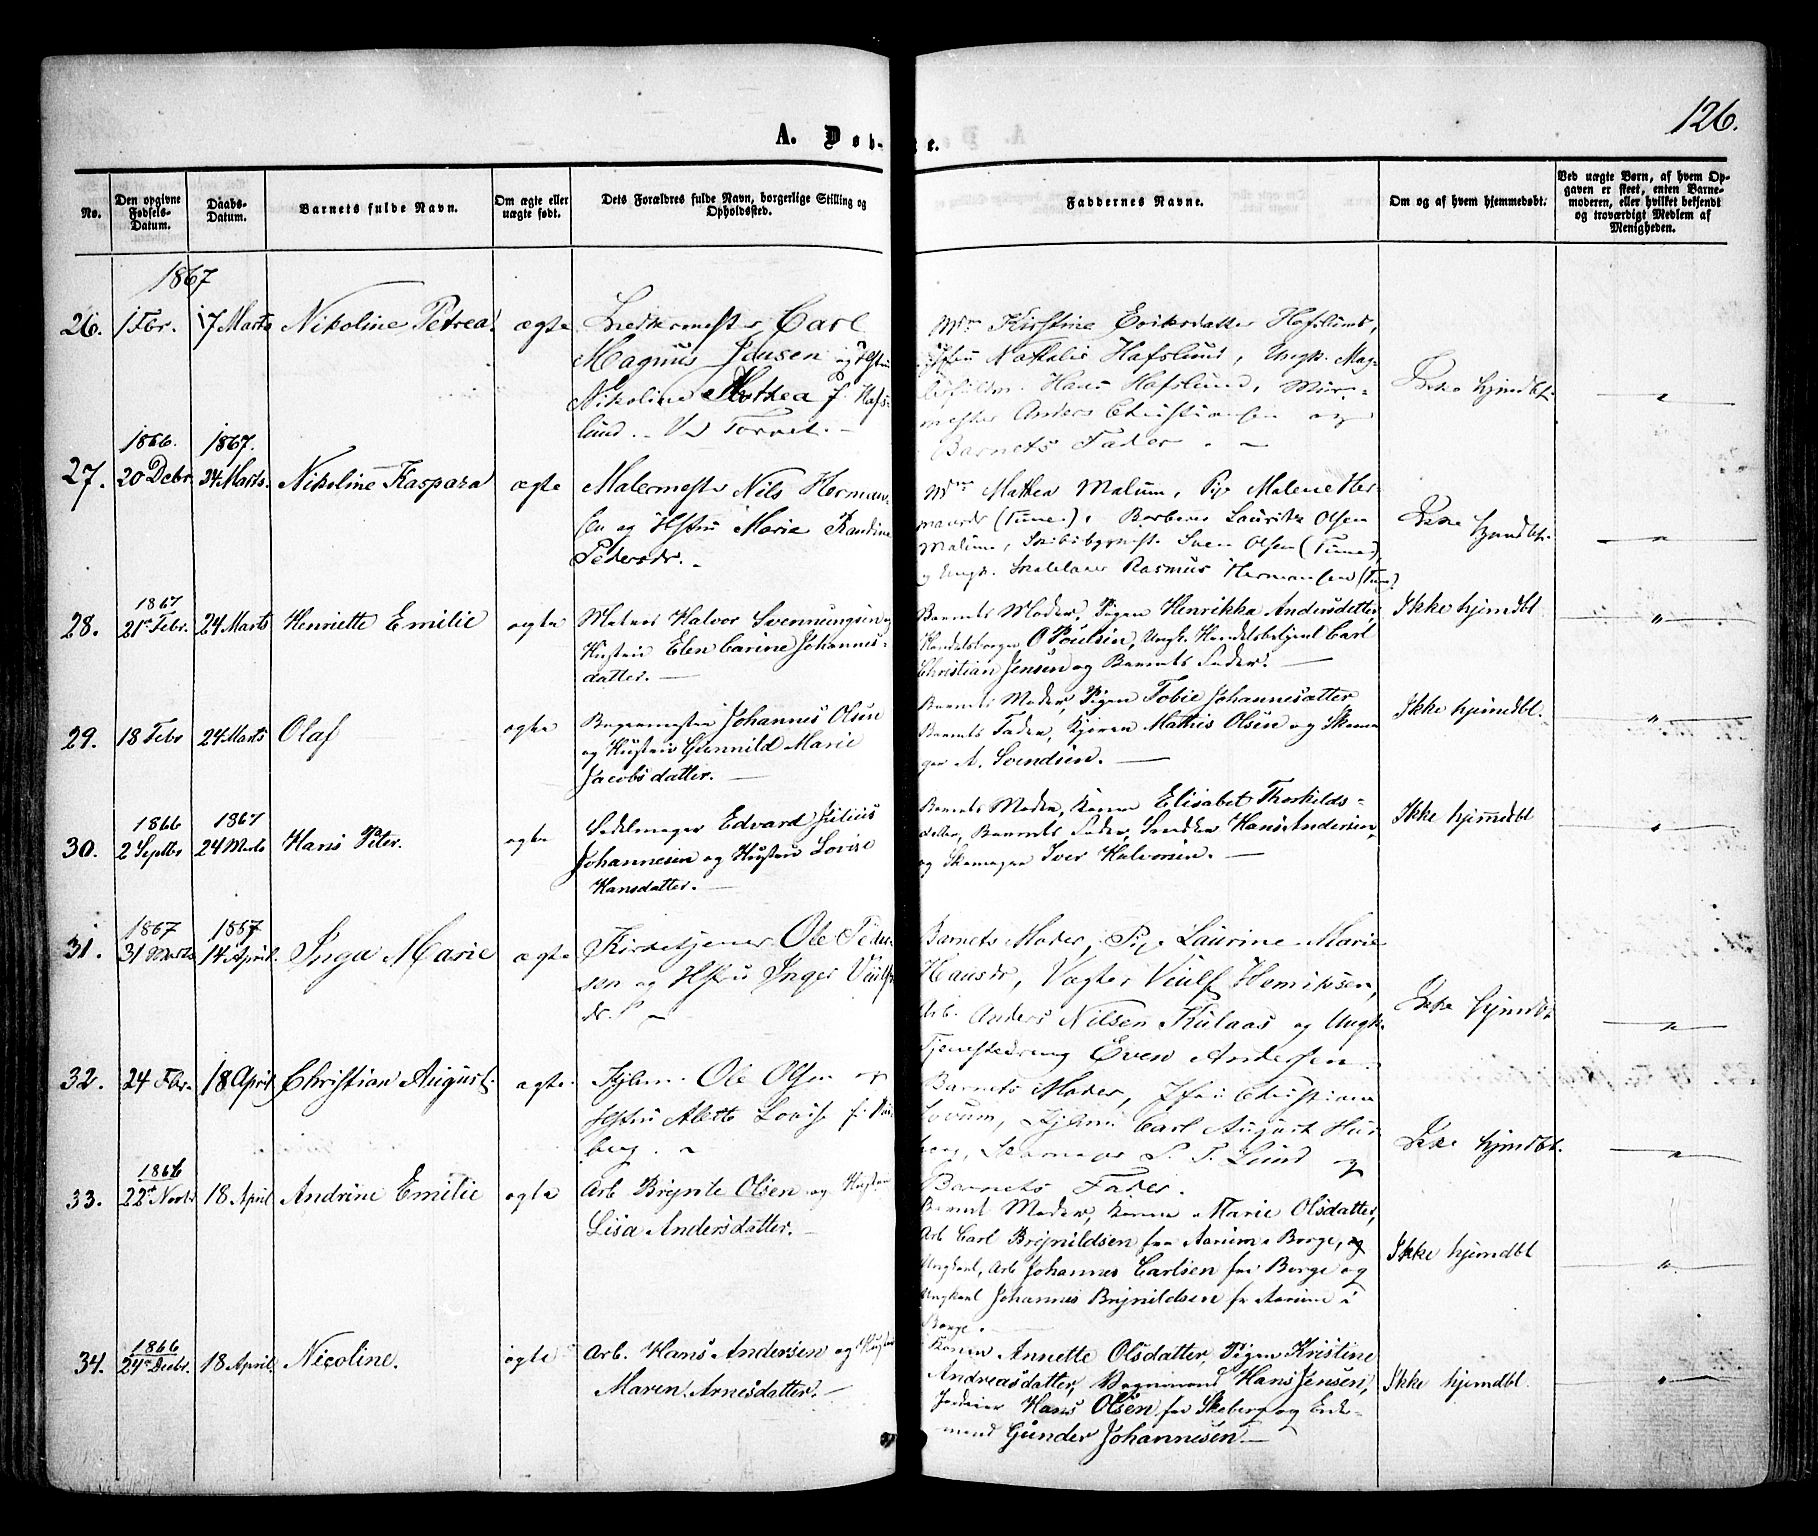 126.
A. Døbte.
No.
Den opgivne Fødsels-Datum.
Daabs-Datum.
Barnets fulde Navn.
Om ægte eller uægte født.
Dets Forældres fulde Navn, borgerlige Stilling og Opholdssted.
Faddernes Navne.
Om og af hvem hjemmedøbt.
Ved uægte Børn, af hvem Opgaven er skeet, enten Barnemoderen, eller hvilket bekjendt og troværdigt Medlem af Menigheden.
1867
26. 1 Fbr. 17 Marts Nikoline Petrea ægte
Carl
Magnus Jensen og Hstru
Nikoline f. Hafs-
lund. - Torvet. -
Mdm Kirstine Eriksdatter Hafslund,
Nathalie Hafslund, Ungk. Mag-
Hans Hafslund, Mur-
mester Anders Christiansen og
Barnets Fader. -
Ikke hjmdbt.
27. 1866. 20 Debr. 1867. 24 Marts. Nikoline Kaspara ægte
Malermester Nils Herman-
sen og Hstru Marie
Pedersdr. -
Mdm Mathea Malum, Pige Malene Her-
mansdr (Tune), Lauritz Olsen
Malum, Skibsbygmest. Sven Olsen (Tune),
og Ungk. Rasmus Hermansen (Tune)
Ikke hjmdbt.
28. 1867 21de Febr. 24 Marts Henriette Emilie ægte
Matros Halvor Svenningsen og
Hustru Elen Carine Johannes-
datter. -
Barnets Moder, Pigen Henrikka Andersdatter,
Handelsborger O Poulsen, Ungk. Handelsbetjent Carl
Christian Jensen og Barnets Fader. -
Ikke hjemdbt
29. 18 Febr 24 Marts Olaf ægte
Bagermester Johannes Olsen
og Hustru Gunnild Marie
Jacobsdatter. -
Barnets Moder, Pigen Tobie Johannesdatter
Barnets Fader, Mathis Olsen og Skoma
ger A. Svendsen. -
Ikke hjemdbt.
30. 1866 2 Septbr 1867 24 Marts Hans Peter. ægte
Sadelmager Edvard Julius
Johannesen og Hustru Lovise
Hansdatter. -
Barnets Moder, Konen Elisabet Thorkilds-
datter, Barnets Fader, Snedker Hans Andersen,
og Skomager Iver Halvorsen. -
Ikke hjemmedbt
31. 1867 31 Marts 1867 14 April. Inga Marie ægte
Kirketjener Ole Peder-
sen og Hstru Inger
dr. -
Barnets Moder, Pige Laurine Marie
Hansdr, Vagter Henriksen,
Arb. Anders Nilsen og Ungk.
Tjenestedreng Even Andersen.
Ikke hjmdbt
32. 24 Fbr. 18 April Christian August. ægte.
Ole Olsen og
Hstru Alette Lovise f.
berg. -
Barnets Moder, Christiane
Carl August
berg, Skomager S. T. Lund og
Barnets Fader.
Ikke hjmdbt.
33. 1866 22de Novbr 18 April Andrine Emilie ægte
Arb. Brynte Olsen og Hustru
Lisa Andersdatter. -
Barnets Moder, Konen Marie Olsdatter,
Arb Carl Brynildsen fra Aarum i Borge,
Ungkarl, Arb Johannes Carlsen fra Borge og
Ungkarl Johannes Brynildsen fr Aarum i
Borge. -
Ikke hjemdbt
34. 1866 24de Decbr 18 April. Nicoline. ægte
Arb. Hans Andersen og Hustru
Maren Arnesdatter. -
Konen Annette Olsdatter, Pigen Kristine
Andreasdatter, Bogmand Hans Jensen,
Hans Olsen fra Skeberg og Enke-
mand Gunder Johannesen. -
Ikke hjemdbt.